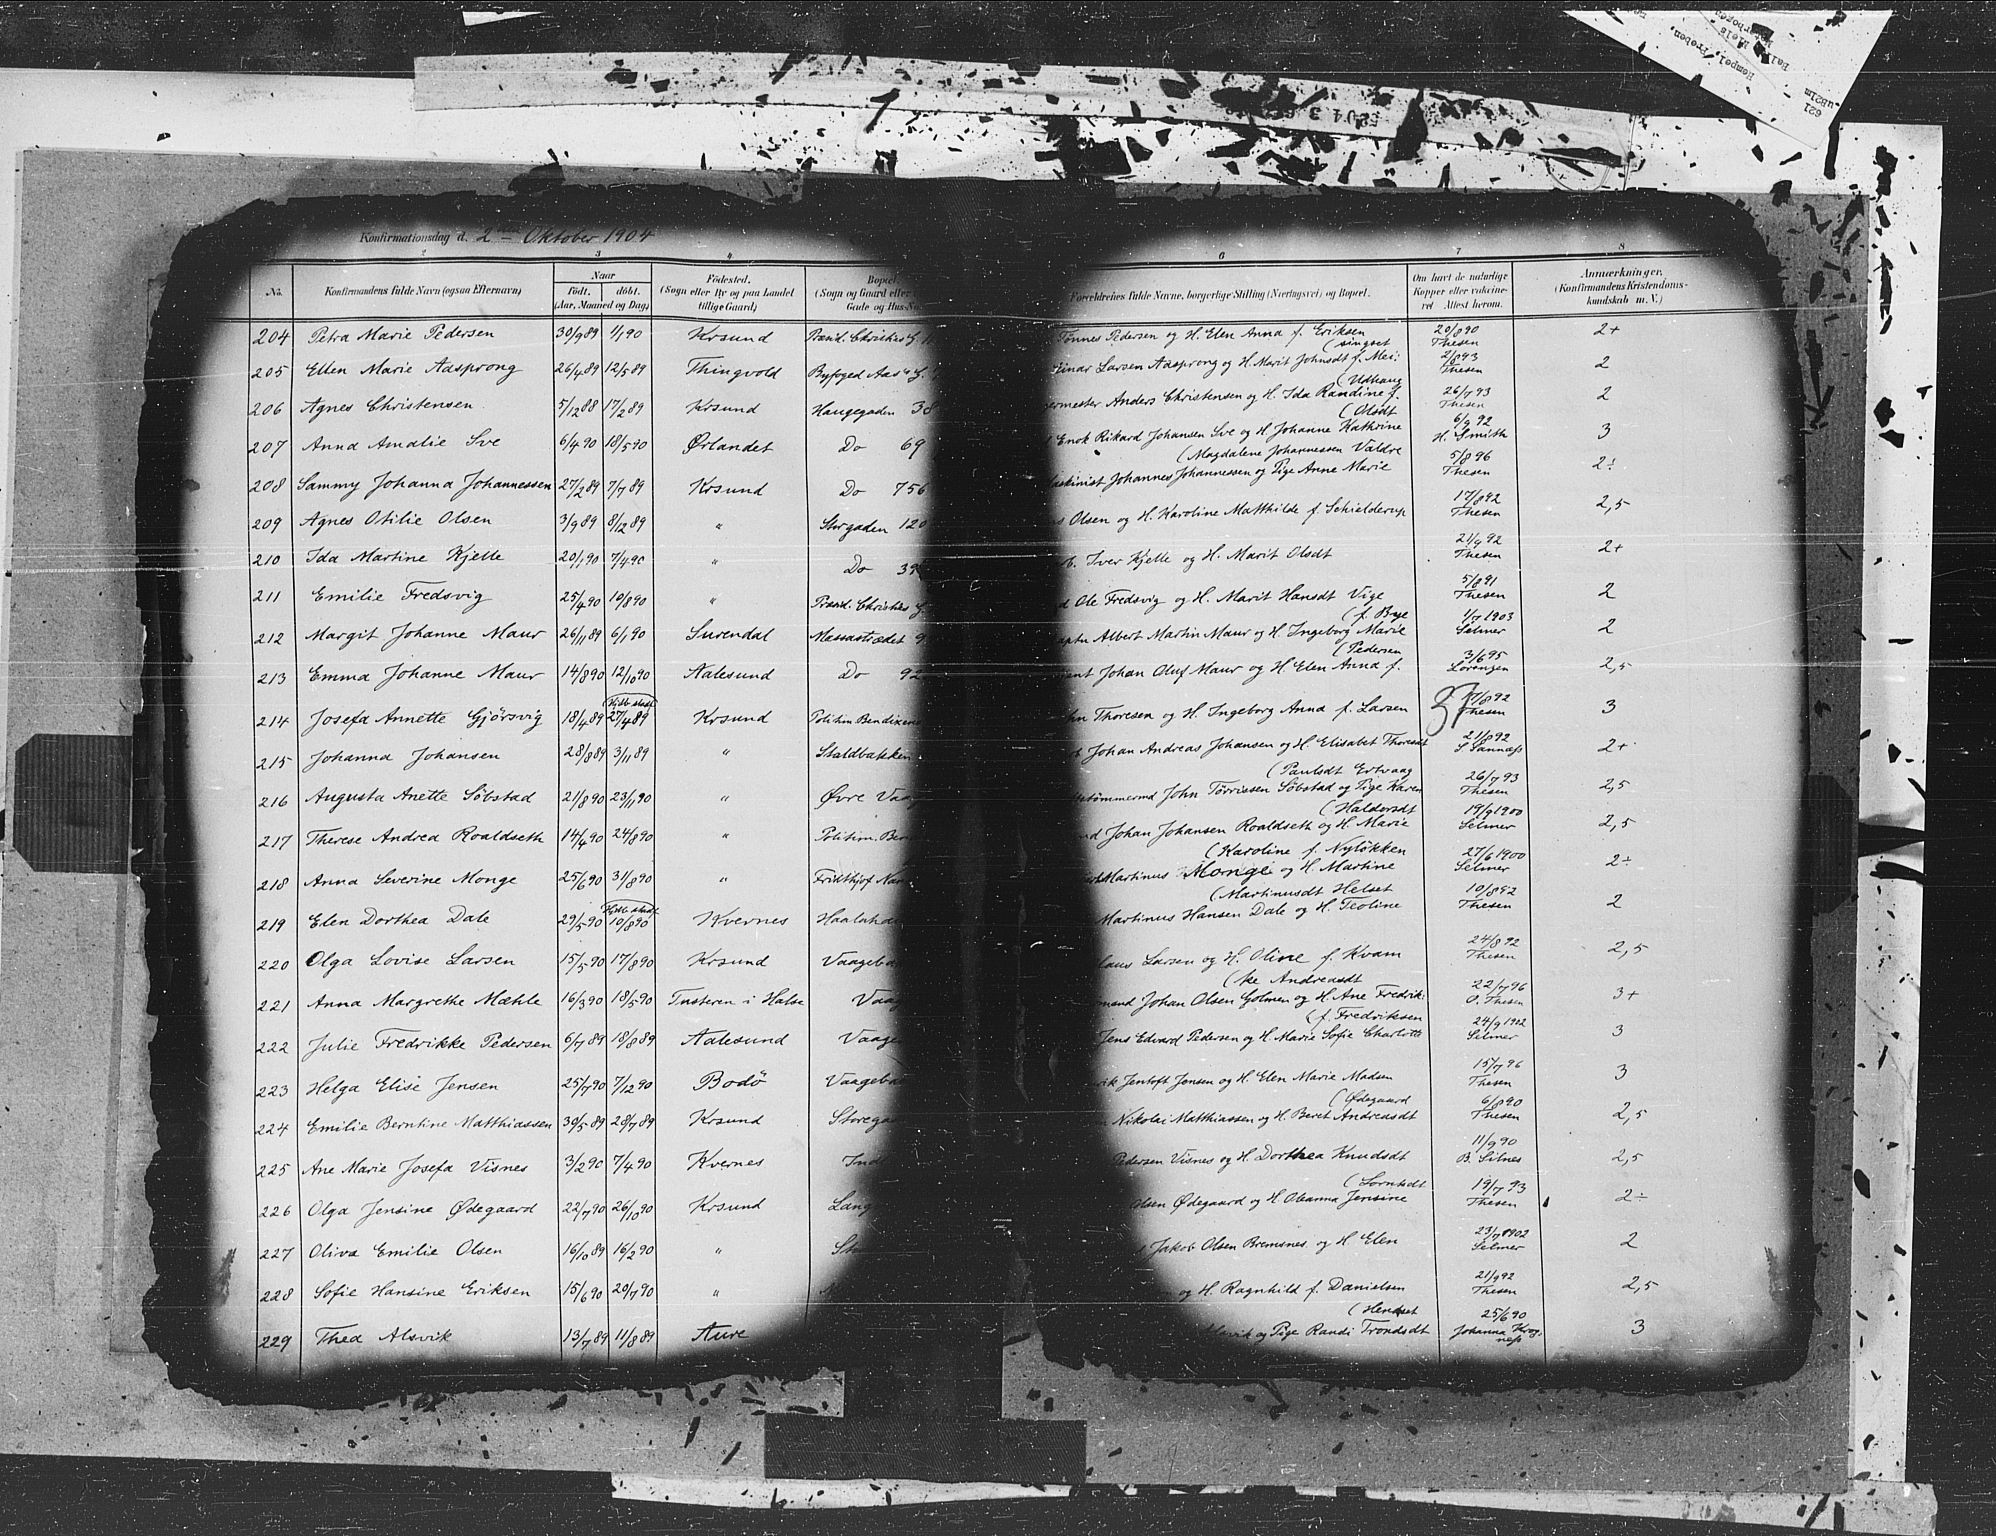 Konfirmationsdag d. 2den Oktober 1904
2 3 4 6 7 8
No. Konfirmandens fulde Navn (ogsaa Efternavn) Naar födt. döbt. (Aar, Maaned og Dag) Födested. (Sogn eller By og paa Landet tillige Gaard) Bopæl (Sogn og Gaard eller Gade og Hus-No. Forældrenes fulde Navne, borgerlige Stilling (Næringsvei) og Bopæl. Om havt de naturlige Kopper eller vakcineret Attest herom. Anmærkninger. (Konfirmandens Kristendomskundskab m. V.)
204 Petra Marie Pedersen 30/9 89 1/1 90 Krsund Præsid. Christies G. Tønnes Pedersen og H. Elen Anna f. Eriksen 20/8 90 Thesen 2+
205 Ellen Marie Aasprong 26/4 89 12/5 89 Thingvold Byfoged Aas's G. Einar Larsen Aasprong og H. Marit Johnsdt f. Mei: (singset 2/8 93 Thesen 2
206 Agnes Christensen 5/12 88 17/2 89 Krsund Haugegaden 38 germester Anders Christensen og H. Ida Randine f. (Udhaug 26/7 93 Thesen 2
207 Anna Amalie Sve 6/4 90 18/5 90 Ørlandet Do 69 Enok Rikard Johansen Sve og H. Johanne Kathrine (Olsdt 6/9 92 H. Smith 3
208 Sammy Johanna Johannessen 27/2 89 7/7 89 Krsund Do 756 askinist Johannes Johannessen og Pige Anne Marie (Magdalene Johannessen Valdre 5/8 96 Thesen 2÷
209 Agnes Otilie Olsen 3/9 89 8/12 89 " Storgaden 120 Olsen og H. Karoline Matthilde f. Schielderup 17/8 92 Thesen 2,5
210 Ida Martine Kjelle 20/1 90 7/4 90 " Do 39 Iver Kjelle og H. Marit Olsdt 21/9 92 Thesen 2+
211 Emilie Fredsvig 25/4 90 10/8 90 " Præsid. Christies G. Ole Fredsvig og H. Marit Hansdt Vige 5/8 91 Thesen 2
212 Margit Johanne Maur 26/11 89 6/1 90 Surendal Massastrædet 9 Albert Martin Maur og H. Ingeborg Marie (f. Bye 1/7 1903 Selmer 2
213 Emma Johanne Maur 14/8 90 12/10 90 Aalesund Do 92 Johan Oluf Maur og H. Elen Anna f. (Pedersen 3/6 95 Lorengen 2,5
214 Josefa Annette Gjørsvig 18/4 89 (Hjdb. stadf. 27/4 89 Krsund Politim Bendixens Thoresen og H. Ingeborg Anna f. Larsen 37 17/8 92 Thesen 3
215 Johanna Johansen 28/8 89 3/11 89 " Staldbakken Johan Andreas Johansen og H. Elisabet Thoresdt 21/8 92 S Sannæss 2+
216 Augusta Anette Söbstad 21/8 90 23/11 90 " Øvre Vaag tømmermd John Törrissen Söbstad og Pige Karen (Paulsdt Ertvaag 26/7 93 Thesen 2,5
217 Therese Andrea Roaldseth 14/4 90 24/8 90 " Politim. Ben Johan Johansen Roaldseth og H. Marie (Haldorsdt 19/9 1900 Selmer 2,5
218 Anna Severine Monge 25/6 90 31/8 90 " Fridthjof Nan Martinus Monge og H. Martine (Karoline f. Nyløkken 27/6 1900 Selmer 2÷
219 Elen Dorthea Dale 29/5 90 Hjdb. stadf. 10/8 90 Kvernes Haalaha Martinus Hansen Dale og H. Teoline (Martinusdt Helset 10/8 92 Thesen 2
220 Olga Lovise Larsen 15/5 90 17/8 90 Krsund Vaageba laus Larsen og H. Oline f. Kvam 24/8 92 Thesen 2,5
221 Anna Margrethe Mæhle 16/3 90 18/5 90 Tusteren i Halse Vaag mand Johan Olsen Golmen og H. Ane Fredrik: (ke Andreasdt 22/7 96 O. Thesen 3+
222 Julie Fredrikke Pedersen 6/7 89 18/8 89 Aalesund Vaage Jens Edvard Pedersen og H. Marie Sofie Charlotte (f. Fredriksen 24/9 1902 Selmer 3
223 Helga Elise Jensen 25/7 90 7/12 90 Bodö Vaageba rik Jentoft Jensen og H. Elen Marie Madsen 15/7 96 Thesen 3
224 Emilie Berntine Matthiassen 30/5 89 28/7 89 Krsund Storega Nikolai Matthiassen og H. Beret Andreasdt (Ødegaard 6/8 90 Thesen 2,5
225 Ane Marie Josefa Visnes 3/2 90 7/4 90 Kvernes Ind Pedersen Visnes og H. Dorthea Knudsdt 11/9 90 B. Silnes 2,5
226 Olga Jensine Ødegaard 22/7 90 26/10 90 Krsund Lang Olsen Ødegaard og H. Oleanna Jensine 19/7 93 Thesen 2÷
227 Oliva Emilie Olsen 16/10 89 16/2 90 " St Jakob Olsen Bremsnes og H Elen 23/7 1902 Selmer 2
228 Sofie Hansine Eriksen 15/6 90 20/7 90 " og H. Ragnhild f. Danielsen 21/9 92 Thesen 2,5
229 Thea Alsvik 13/7 89 11/8 89 Aure Alsvik og Pige Randi Trondsdt (Hendset 25/6 90 Johanna Krogness 3